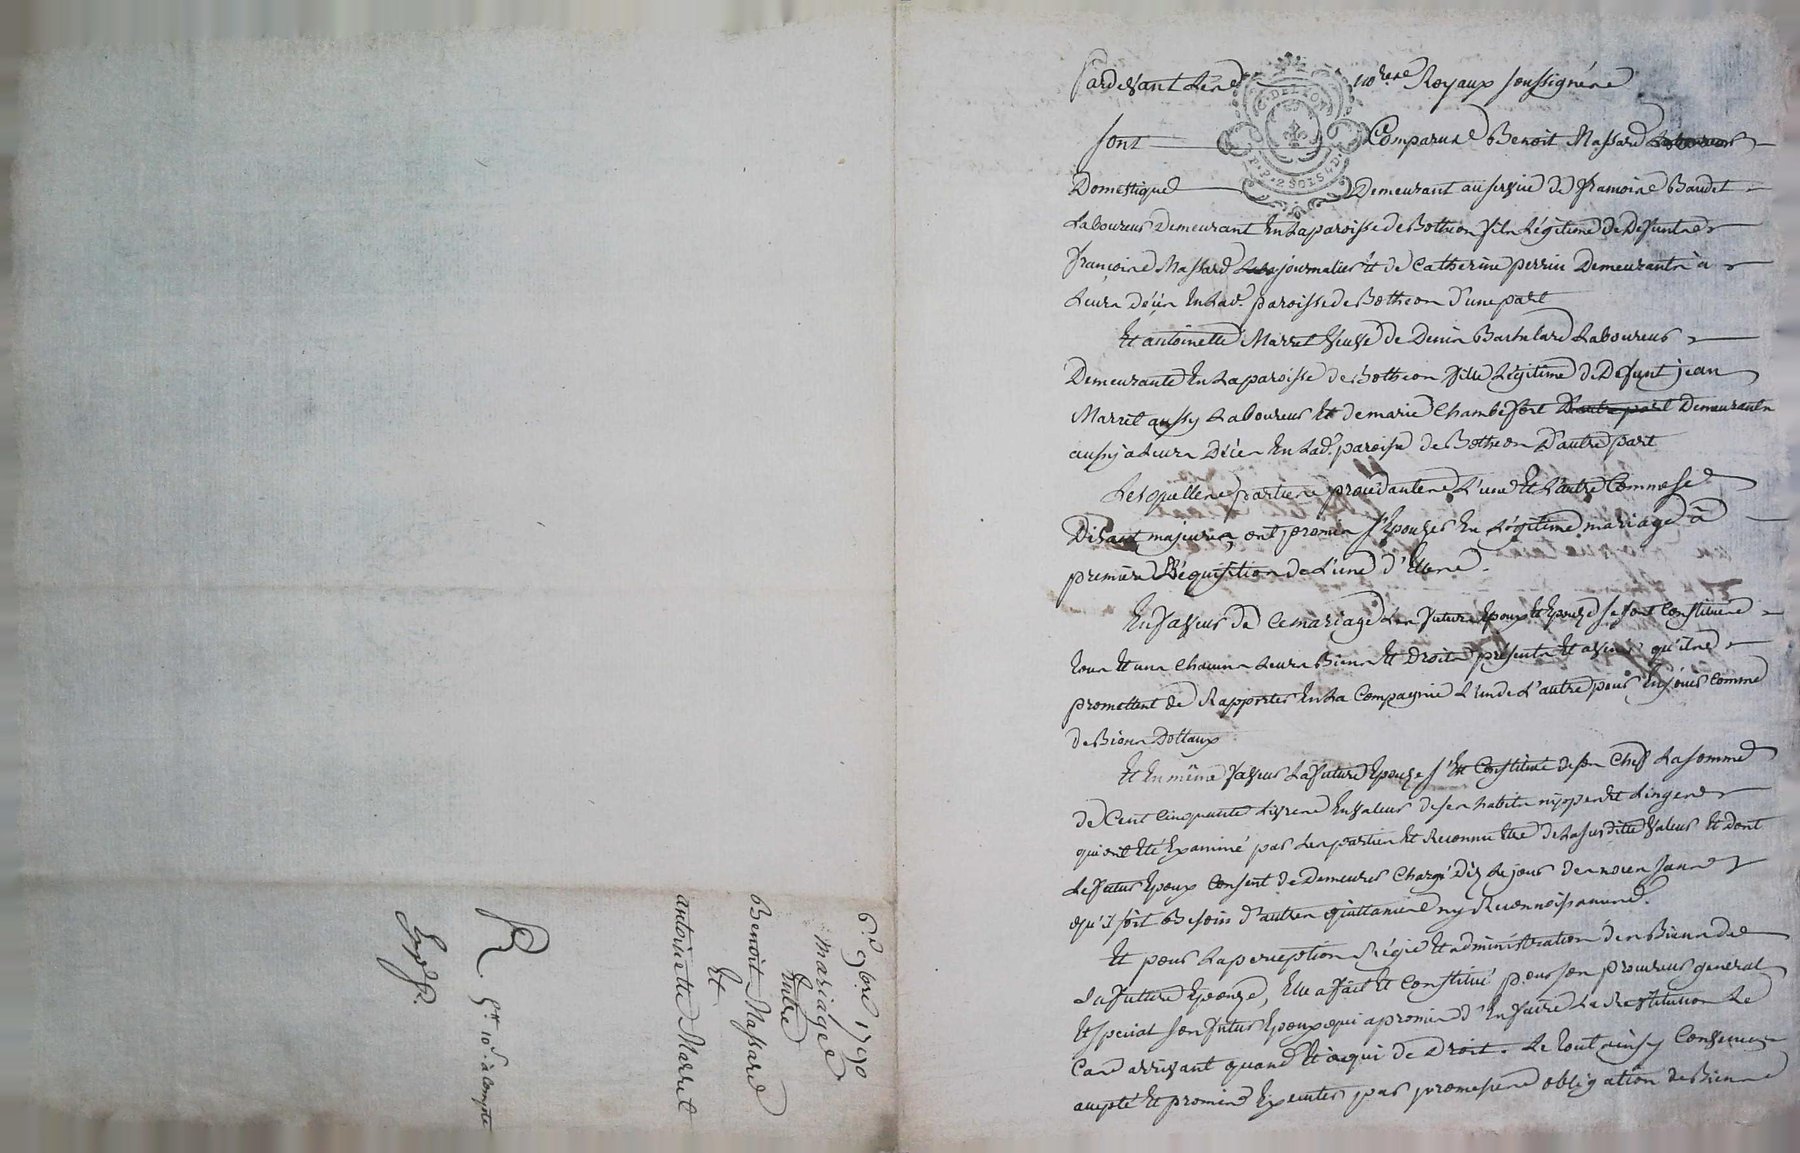 6.e 9bre 1790
mariage
Entre
Benoit Massard
Et
antoinette Marret
R. 5tt 10s. à compte
Exp. fe.
Pardevant Les no.res Royaux soussignés
G. DE LYON
P.P. 2 SOLS 4 D.
sont Comparus Benoit Massard
Domestique Demeurant au service de francois Baudet
Laboureur Demeurant En La paroisse de Botheon fils Légitime de Defunts
françois Massard journalier Et de Catherine perrin Demeurants à
Leurs décès En Lad. paroisse de Botheon d'une part
Et antoinette Marret veuve de Denis Bachelard Laboureur
Demeurante En La paroisse de Botheon fille Légitime de Defunt jean
Marret aussy Laboureur Et de marie Chambefort D'autre part Demeurants
aussy a Leurs Décès En Lad. paroisse de Botheon D'autre part
Lesquelles parties procédantes L'une Et L'autre Comme se
Disant majeurs, ont promis s'Epouser En Légitime mariage à
première Réquisition de L'une d'Elles.
En faveur de Ce mariage Les futurs Epoux Et Epouse se sont Constitués
tous Et uns Chacuns Leurs Biens Et Droits présents Et avenir qu'ils
promettent de Rapporter En La Compagnie L'un de L'autre pour En jouir Comme
de Biens Dottaux
Et En même faveur La future Epouse s'Est Constitué de son Chef La somme
de Cent Cinquante Livres En valeur de ses habits nippes Et Linges
qui ont Eté Examiné par Les parties Et Reconnu Etre de La susditte valeur Et dont
Le futur Epoux Consent de Demeurer Chargé Dès Le jour des noces sans
qu'il soit Besoin d'autres quittances ny Reconnoissances.
Et pour La perception Régie Et administration des Biens de
La future Epouse, Elle a fait Et Constitué pour son procureur general
Et special son futur Epoux qui a promis d'En faire La Restitution Le
Cas arrivant quand Et à qui de Droit. Le tout ainsy Convenu
accepté Et promis Executer par promesses obligation de Biens